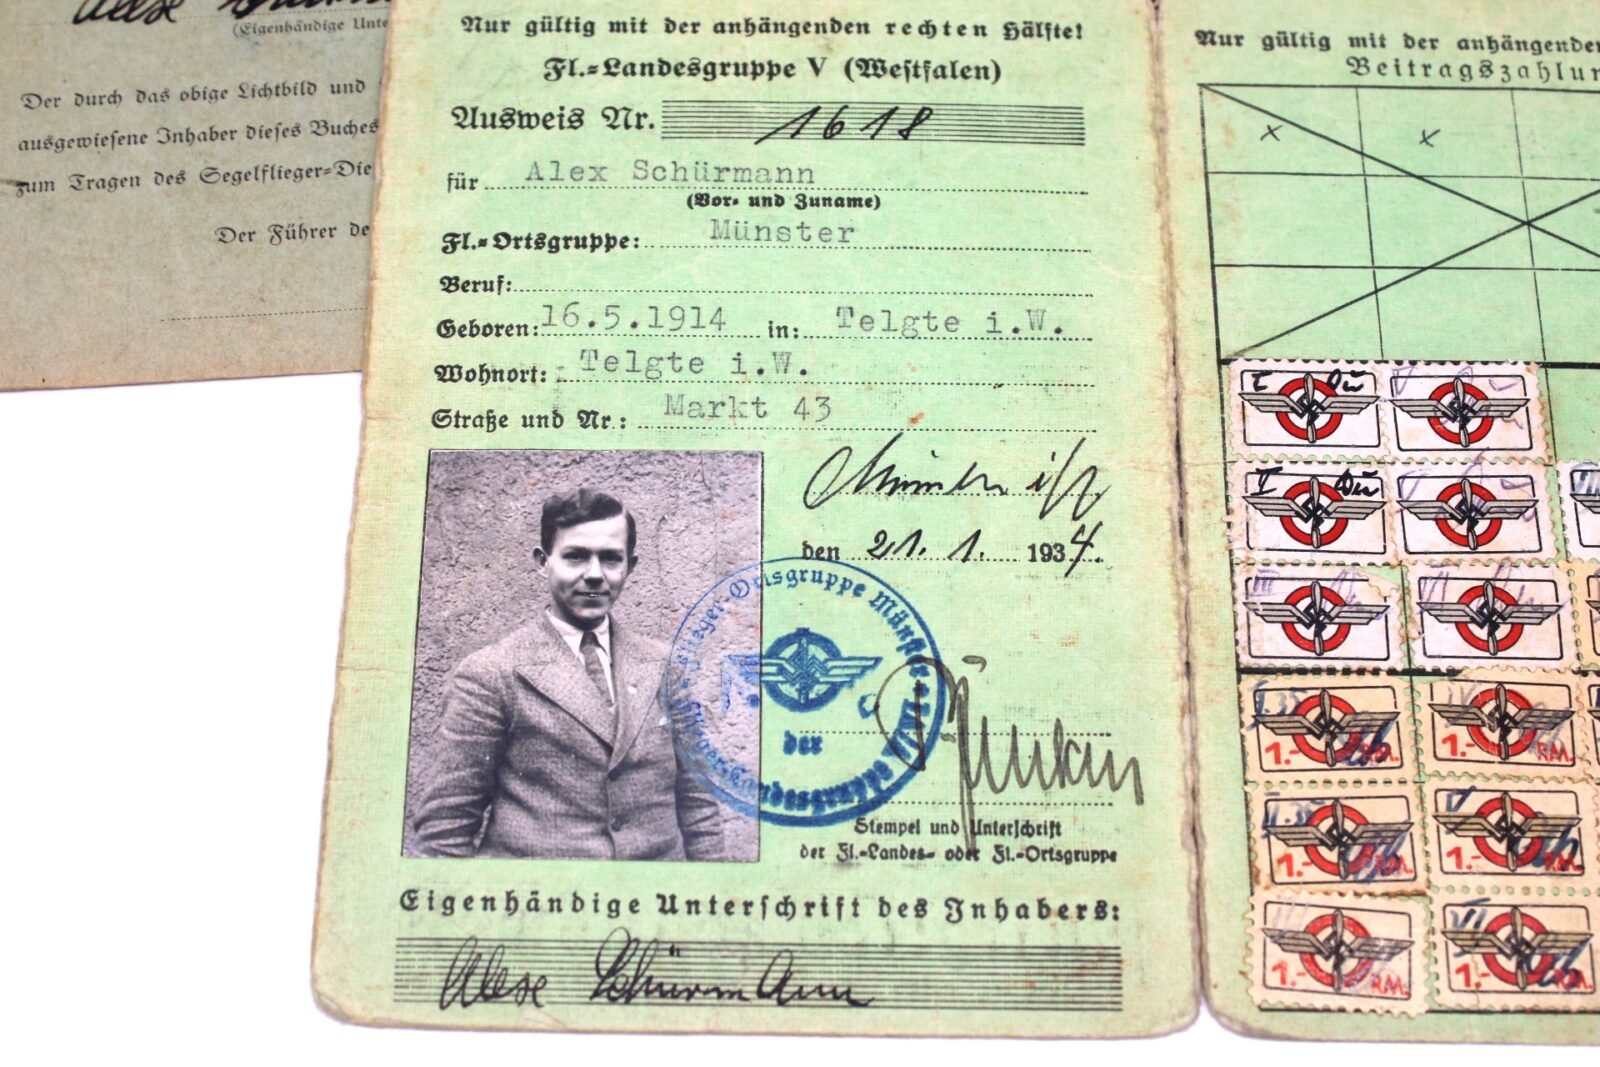 Alexe
(Eigenhändige Unte
Der durch das obige Lichtbild und
ausgewiesene Inhaber dieses Buches
zum Tragen des Segelflieger-Die
Der Führer de
Nur gültig mit der anhängenden rechten Hälfte!
Fl.-Landesgruppe V (Westfalen)
Ausweis Nr. 1618
für Alex Schürmann
(Vor- und Zuname)
Fl.-Ortsgruppe: Münster
Beruf:
Geboren: 16.5.1914 in: Telgte i.W.
Wohnort: Telgte i.W.
Straße und Nr.: Markt 43
Münster i/W
den 21. 1. 1934.
Flieger-Ortsgruppe Münster i/W.
der
Flieger-Landesgruppe V
Stempel und Unterschrift
der Fl.-Landes- oder Fl.-Ortsgruppe
Eigenhändige Unterschrift des Inhabers:
Alexe Schürmann
Nur gültig mit der anhängenden
Beitragszahlun
x x
I
II
III VI
1.- RM. 1.- RM.
1.- RM. 1.- RM.
1.- RM. 1.- RM.